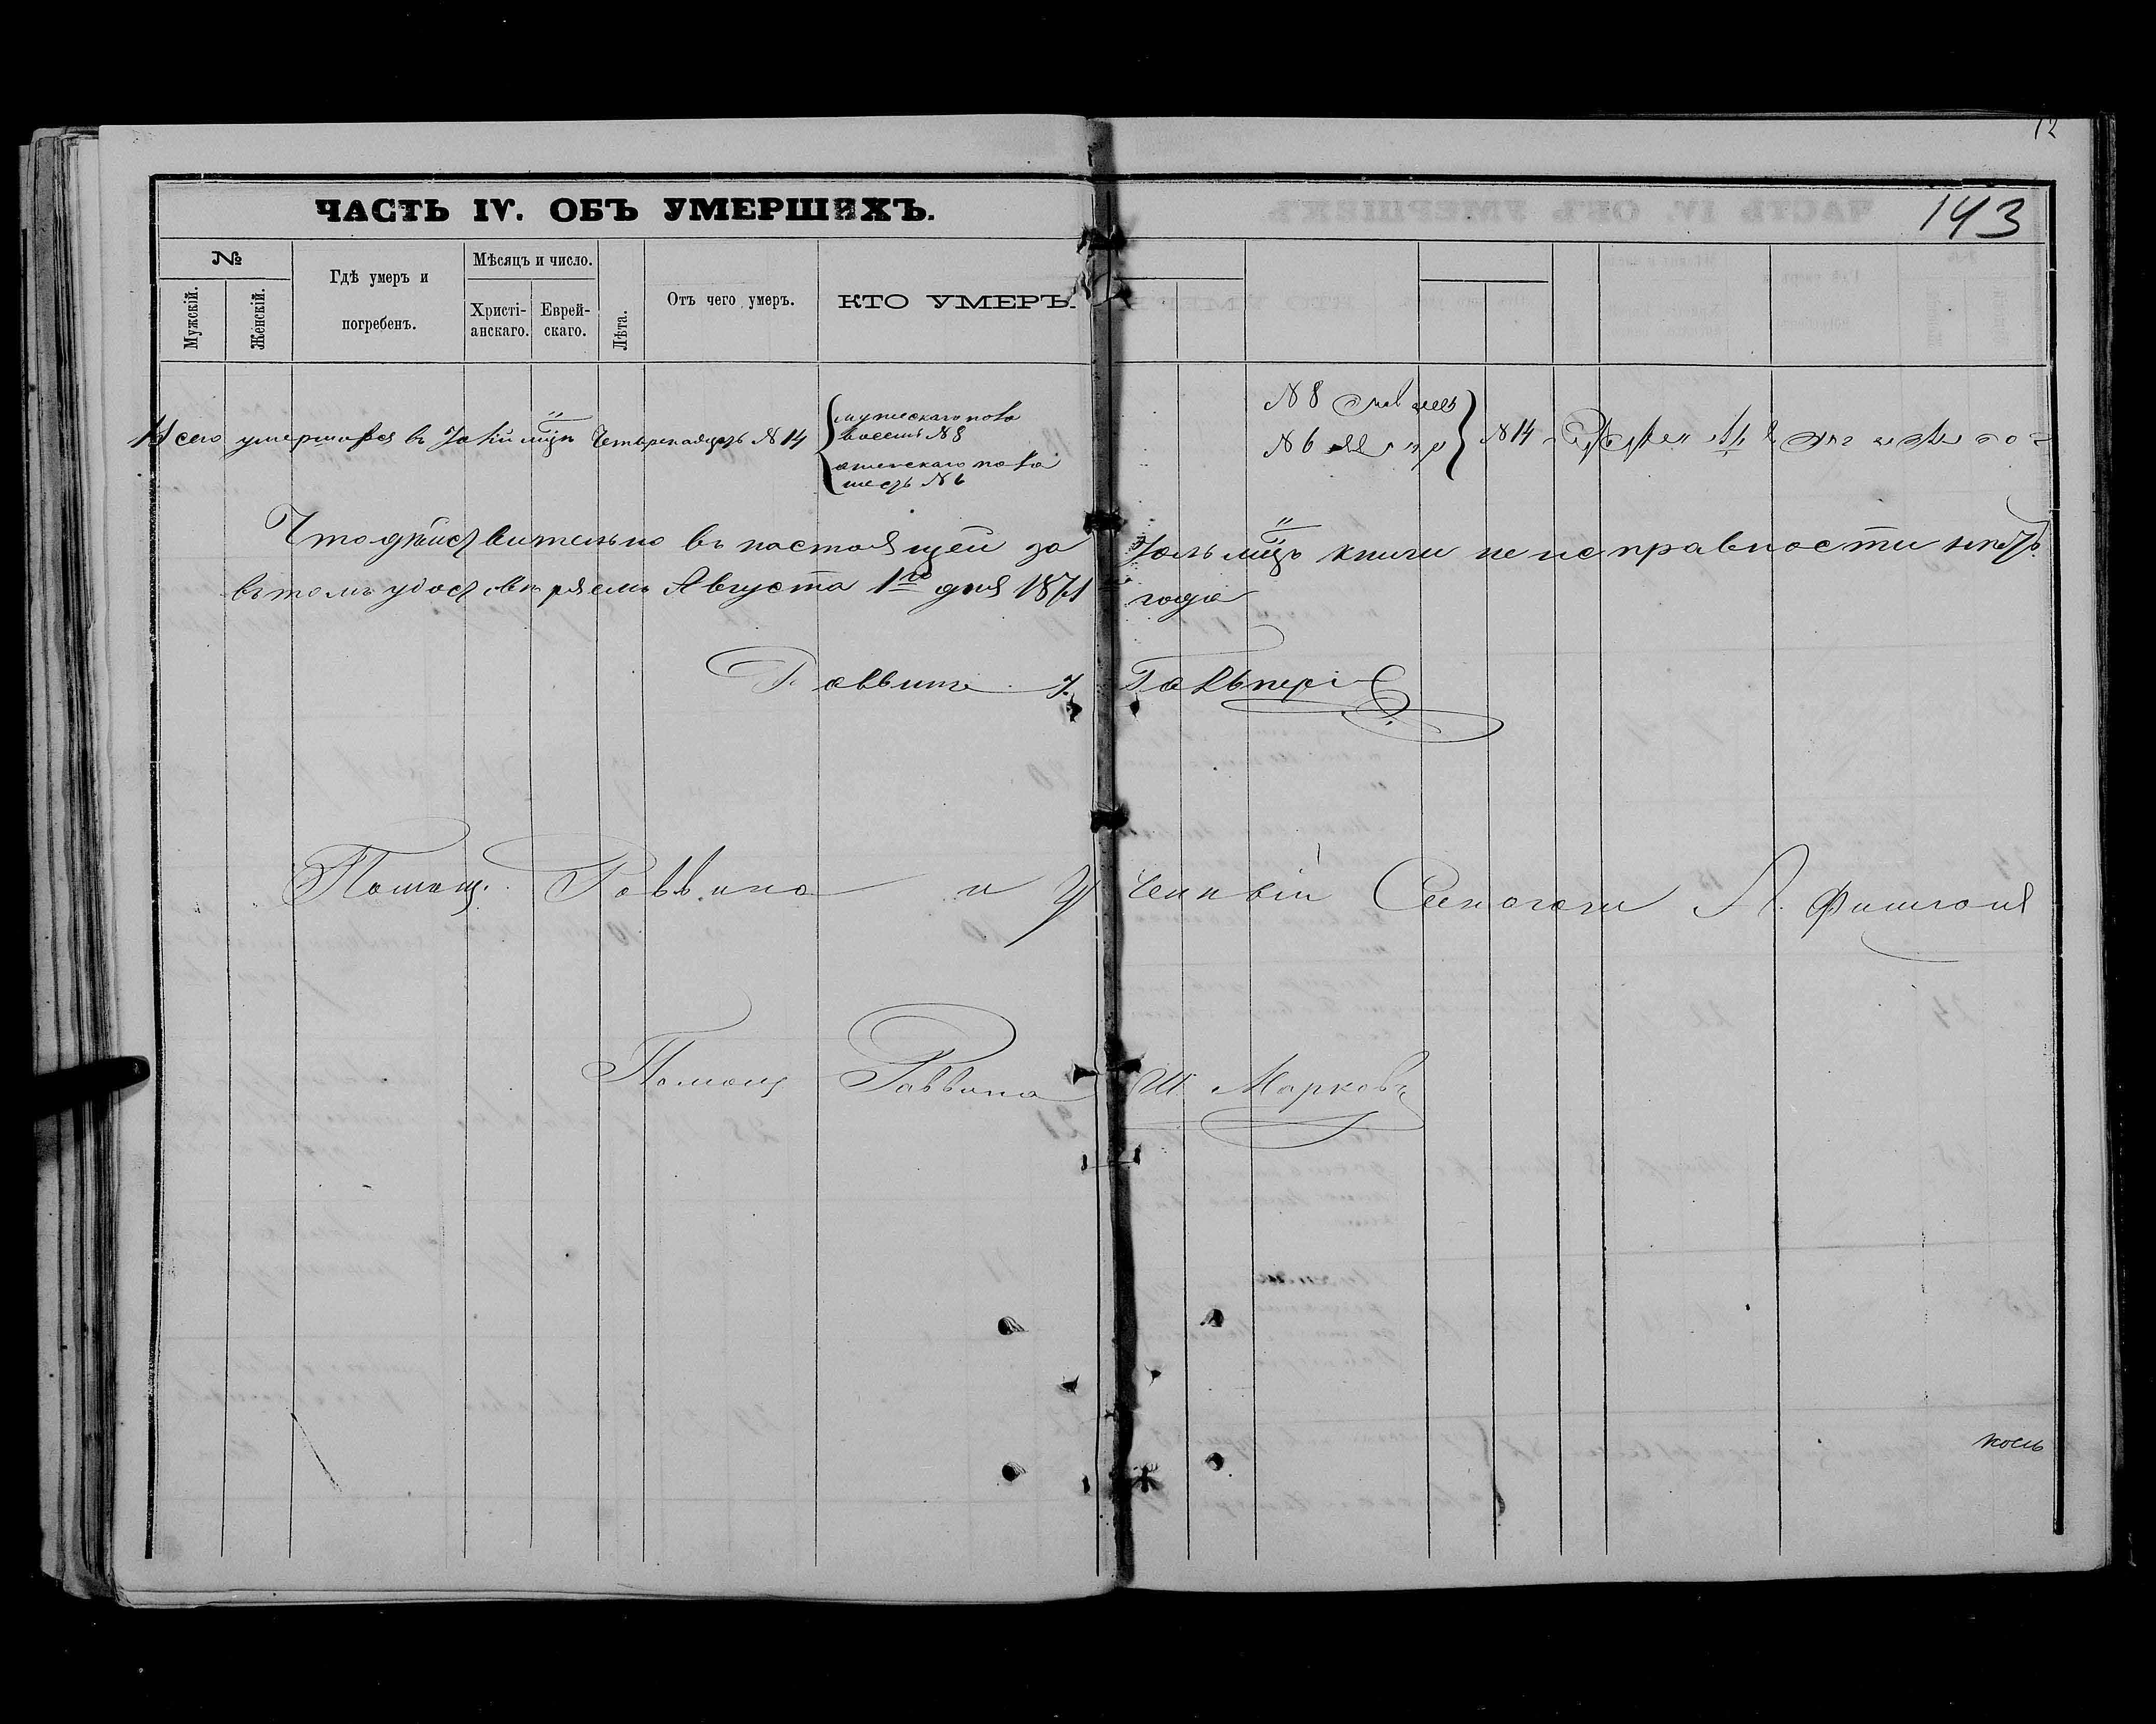 12
143
ЧАСТЬ IV. ОБЪ УМЕРШИХЪ.
№
Мужскій.
Женскій.
Гдѣ умеръ и погребенъ.
Мѣсяцъ и число.
Христі-анскаго.
Еврей-скаго.
Лѣта.
Отъ чего умеръ.
КТО УМЕРЪ.
Всего умершихся въ Іюли мцѣ Четырнадцать N 14
мужескаго пола
восемь N 8
женскаго пола
шесть N 6
N 8
N 6
N 14
Что дѣйствительно въ настоящей за Іюль мцъ книги не исправности нѣтъ
въ томъ удостовѣряемъ Августа 1го дня 1871 года
Раввинъ Гальперi
Помощ. Раввина и Ученный Синагоги А.
Помощ Раввина Ш. Марковъ